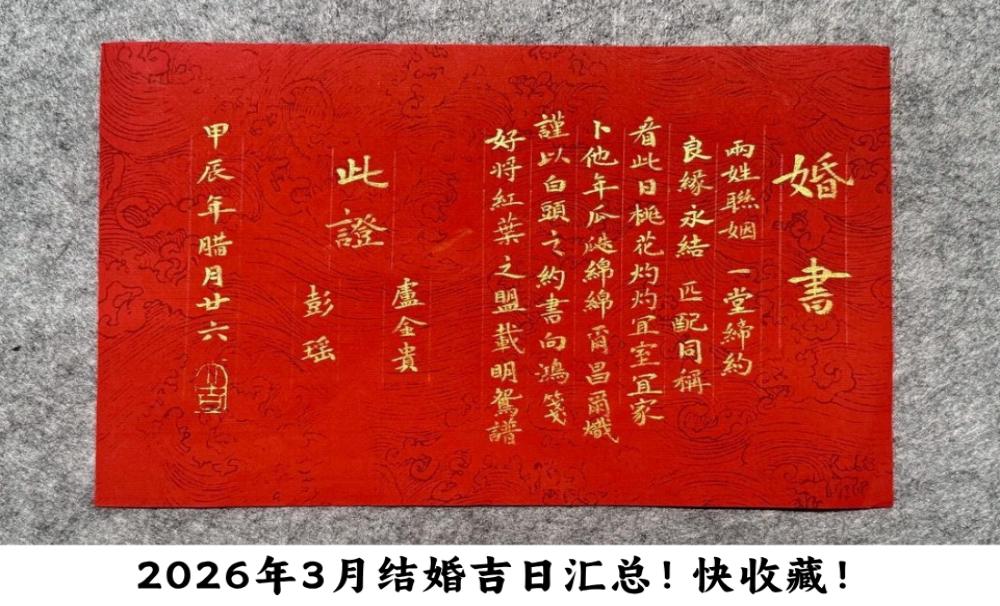 婚書
兩姓聯姻 一堂締約
良緣永結 匹配同稱
看此日桃花灼灼宜室宜家
卜他年瓜瓞綿綿爾昌爾熾
謹以白頭之約書向鴻箋
好將紅葉之盟載明鴛譜
盧金貴
此證
彭瑶
甲辰年腊月廿六
2026年3月结婚吉日汇总！快收藏！